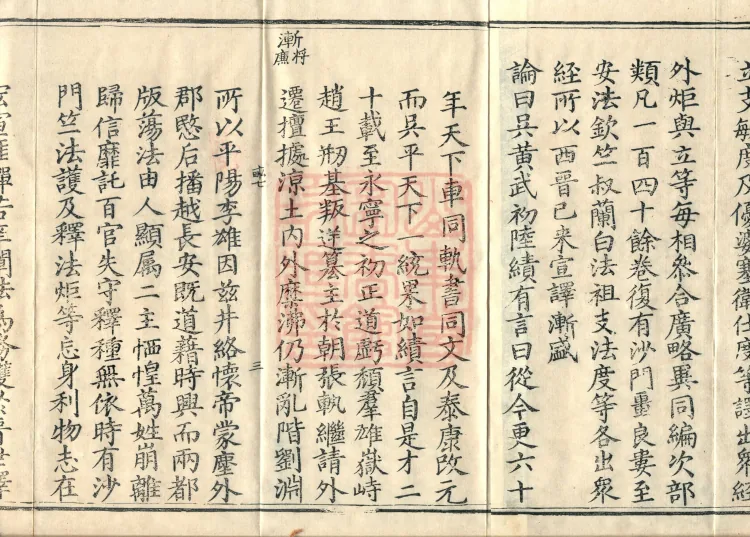 立支敏度及優婆塞衛仕度等譯出衆經
外炬與立等每相叅合廣略異同編次部
類凡一百四十餘卷復有沙門畺良婁至
安法欽竺叔蘭白法祖支法度等各出衆
經所以西晉已来宣譯漸盛
論曰吳黃武初陸績有言曰從今更六十
年天下車同軌書同文及泰康改元
而吳平天下一統畧如績言自是才二
十載至永寧之初正道虧頹羣雄嶽峙
趙王剙基叛逆篡主於朝張軌繼請外
遷擅據涼土内外糜沸仍漸亂階劉淵
漸将
三
所以平陽李雄因兹井絡懷帝蒙塵外
郡愍后播越長安既道藉時興而兩都
版蕩法由人顯属二主恓惶萬姓崩離
歸信靡託百官失守釋種無依時有沙
門竺法護及釋法炬等忘身利物志在
宏宣匪憚苦辛闡法為務雙於晉世譯